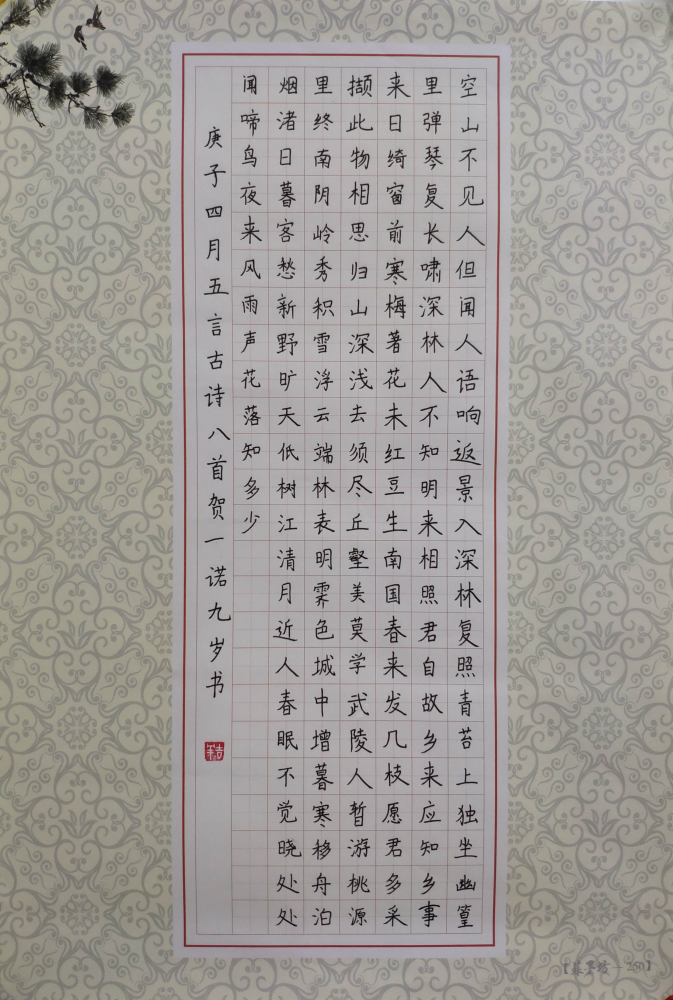 空山不见人但闻人语响返景入深林复照青苔上独坐幽篁
里弹琴复长啸深林人不知明来相照君自故乡来应知乡事
来日绮窗前寒梅著花未红豆生南国春来发几枝愿君多采
撷此物相思归山深浅去须尽丘壑美莫学武陵人暂游桃源
里终南阴岭秀积雪浮云端林表明霁色城中增暮寒移舟泊
烟渚日暮客愁新野旷天低树江清月近人春眠不觉晓处处
闻啼鸟夜来风雨声花落知多少
庚子四月五言古诗八首贺一诺九岁书